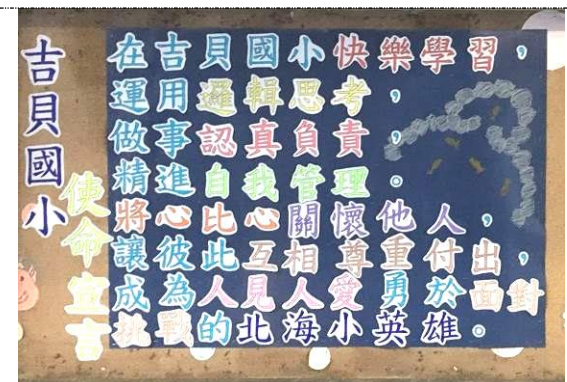 吉貝國小
使命宣言
在吉貝國小快樂學習，
運用邏輯思考，
做事認真負責，
精進自我管理。
將心比心關懷他人，
讓彼此互相尊重付出，
成為人見人愛勇於面對
挑戰的北海小英雄。